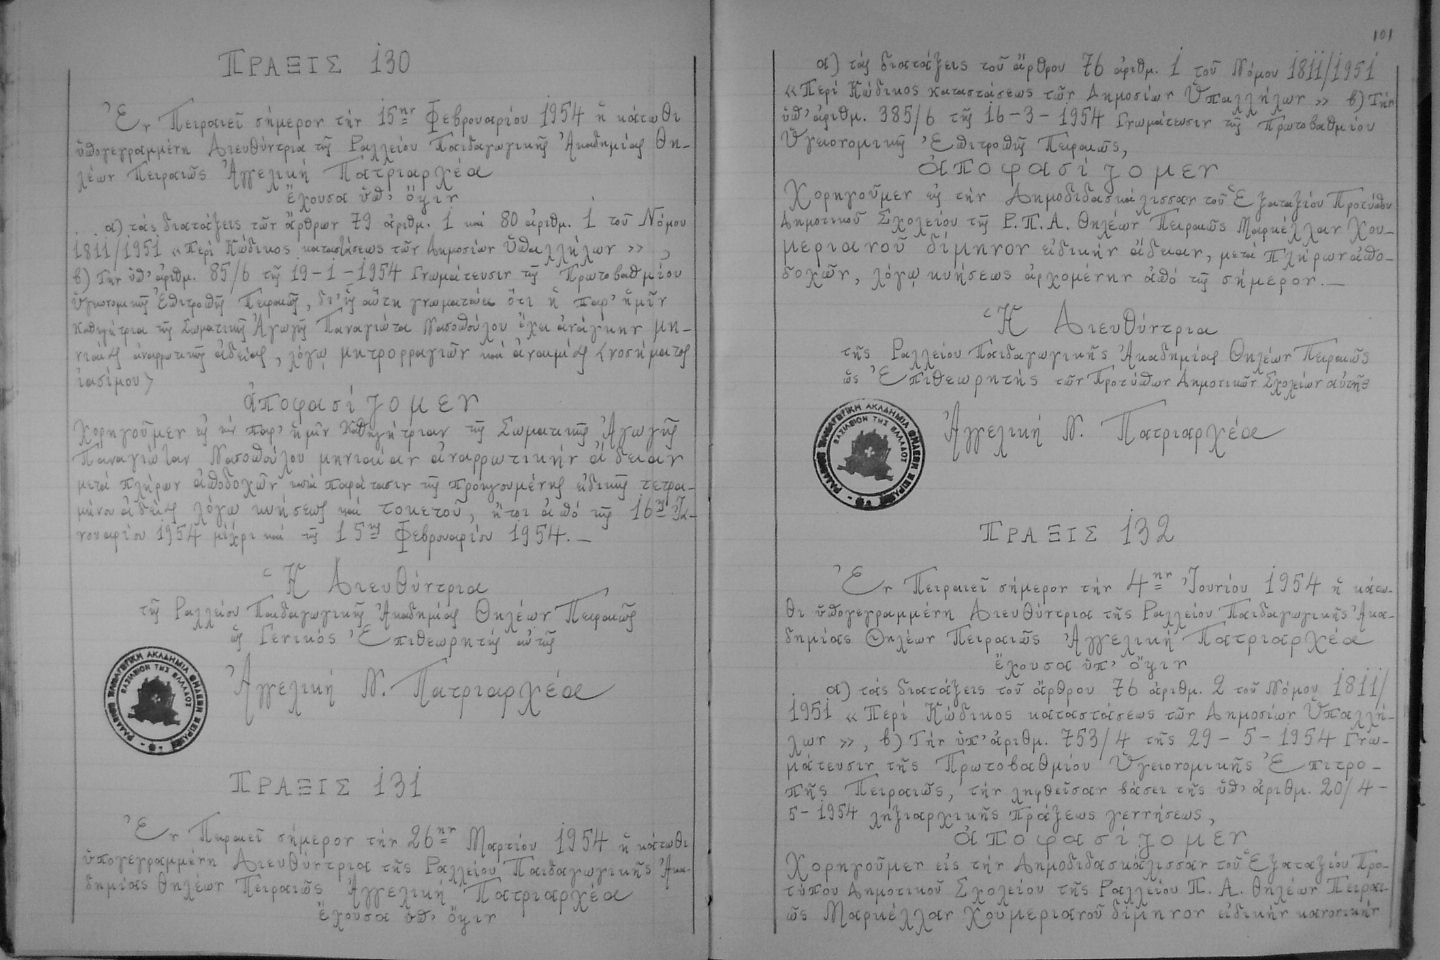 ΠΡΑΞΙΣ 130
Ἐν Πειραιεῖ σήμερον τήν 15ην Φεβρουαρίου 1954 ἡ κάτωθι
ὑπογεγραμμένη Διευθύντρια τῆς Ραλλείου Παιδαγωγικῆς Ἀκαδημίας Θη-
λέων Πειραιῶς Ἀγγελική Πατριαρχέα
ἔχουσα ὑπ' ὄψιν
α) τάς διατάξεις τῶν ἄρθρων 79 ἀριθμ. 1 καί 80 ἀριθμ. 1 τοῦ Νόμου
1811/1951 «Περί Κώδικος καταστάσεως τῶν Δημοσίων Ὑπαλλήλων»
β) Τήν ὑπ' ἀριθμ. 85/6 τῆς 19-1-1954 Γνωμάτευσιν τῆς Πρωτοβαθμίου
Ὑγειονομικῆς Ἐπιτροπῆς Πειραιῶς, δι' ἧς αὕτη γνωματεύει ὅτι ἡ παρ' ἡμῖν
Καθηγήτρια τῆς Σωματικῆς Ἀγωγῆς Παναγιώτα Νασοπούλου ἔχει ἀνάγκην μη-
νιαίας ἀναρρωτικῆς ἀδείας, λόγῳ μητρορραγιῶν καί ἀναιμίας (νοσήματος
ἰασίμου)
ἀποφασίζομεν
Χορηγοῦμεν εἰς τήν παρ' ἡμῖν Καθηγήτριαν τῆς Σωματικῆς Ἀγωγῆς
Παναγιώταν Νασοπούλου μηνιαίαν ἀναρρωτικήν ἄδειαν
μετά πλήρων ἀποδοχῶν κατά παράτασιν τῆς προηγουμένης εἰδικῆς τετρα-
μήνου ἀδείας λόγῳ κυήσεως καί τοκετοῦ, ἤτοι ἀπό τῆς 16ης Ἰα-
νουαρίου 1954 μέχρι καί τῆς 15ης Φεβρουαρίου 1954.—
Ἡ Διευθύντρια
τῆς Ραλλείου Παιδαγωγικῆς Ἀκαδημίας Θηλέων Πειραιῶς
ὡς Γενικός Ἐπιθεωρητής αὐτῆς
Ἀγγελική Ν. Πατριαρχέα
ΒΑΣΙΛΕΙΟΝ ΤΗΣ ΕΛΛΑΔΟΣ
ΠΡΑΞΙΣ 131
Ἐν Πειραιεῖ σήμερον τήν 26ην Μαρτίου 1954 ἡ κάτωθι
ὑπογεγραμμένη Διευθύντρια τῆς Ραλλείου Παιδαγωγικῆς Ἀκα-
δημίας Θηλέων Πειραιῶς Ἀγγελική Πατριαρχέα
ἔχουσα ὑπ' ὄψιν
101
α) τάς διατάξεις τοῦ ἄρθρου 76 ἀριθμ. 1 τοῦ Νόμου 1811/1951
«Περί Κώδικος καταστάσεως τῶν Δημοσίων Ὑπαλλήλων» β) Τήν
ὑπ' ἀριθμ. 385/6 τῆς 16-3-1954 Γνωμάτευσιν τῆς Πρωτοβαθμίου
Ὑγειονομικῆς Ἐπιτροπῆς Πειραιῶς,
ἀποφασίζομεν
Χορηγοῦμεν εἰς τήν Δημοδιδασκάλισσαν τοῦ Ἑξαταξίου Προτύπου
Δημοτικοῦ Σχολείου τῆς Ρ.Π.Α. Θηλέων Πειραιῶς Μαρκέλλαν Χου-
μεριανοῦ δίμηνον εἰδικήν ἄδειαν, μετά πλήρων ἀπο-
δοχῶν, λόγῳ κυήσεως ἀρχομένην ἀπό τῆς σήμερον.—
Ἡ Διευθύντρια
τῆς Ραλλείου Παιδαγωγικῆς Ἀκαδημίας Θηλέων Πειραιῶς
ὡς Ἐπιθεωρητής τῶν Προτύπων Δημοτικῶν Σχολείων αὐτῆς
Ἀγγελική Ν. Πατριαρχέα
ΒΑΣΙΛΕΙΟΝ ΤΗΣ ΕΛΛΑΔΟΣ
ΠΡΑΞΙΣ 132
Ἐν Πειραιεῖ σήμερον τήν 4ην Ἰουνίου 1954 ἡ κάτω-
θι ὑπογεγραμμένη Διευθύντρια τῆς Ραλλείου Παιδαγωγικῆς Ἀκα-
δημίας Θηλέων Πειραιῶς Ἀγγελική Πατριαρχέα
ἔχουσα ὑπ' ὄψιν
α) τάς διατάξεις τοῦ ἄρθρου 76 ἀριθμ. 2 τοῦ Νόμου 1811/
1951 «Περί Κώδικος καταστάσεως τῶν Δημοσίων Ὑπαλλή-
λων», β) Τήν ὑπ' ἀριθμ. 753/4 τῆς 29-5-1954 Γνω-
μάτευσιν τῆς Πρωτοβαθμίου Ὑγειονομικῆς Ἐπιτρο-
πῆς Πειραιῶς, τήν ληφθεῖσαν βάσει τῆς ὑπ' ἀριθμ. 20/4-
5-1954 ληξιαρχικῆς πράξεως γεννήσεως,
ἀποφασίζομεν
Χορηγοῦμεν εἰς τήν Δημοδιδασκάλισσαν τοῦ Ἑξαταξίου Προ-
τύπου Δημοτικοῦ Σχολείου τῆς Ραλλείου Π. Α. Θηλέων Πειραι-
ῶς Μαρκέλλαν Χουμεριανοῦ δίμηνον εἰδικήν κανονικήν